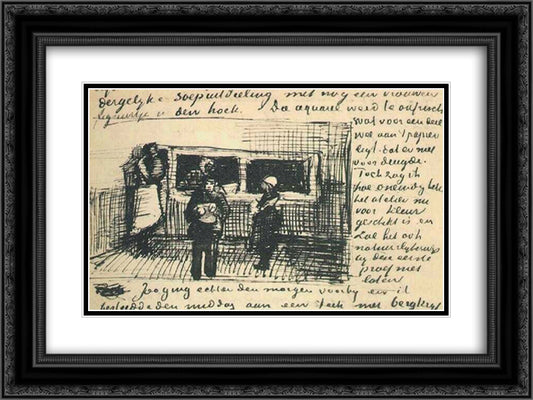 dergelijke soepuitdeeling met nog een vrouwen
figuurtje in den hoek. De aquarel werd te
wat voor een deel
wel aan 't papier
ligt dat er niet
voor deugde.
Toch zag ik
hoe oneindig beter
het atelier nu
voor kleur
geschikt is en
zal het ook
natuurlijk
bij deze eerste
proef niet
laten
Zoo ging echter den morgen voorby en ik
besteedde den middag aan een stuk met bergkrijt